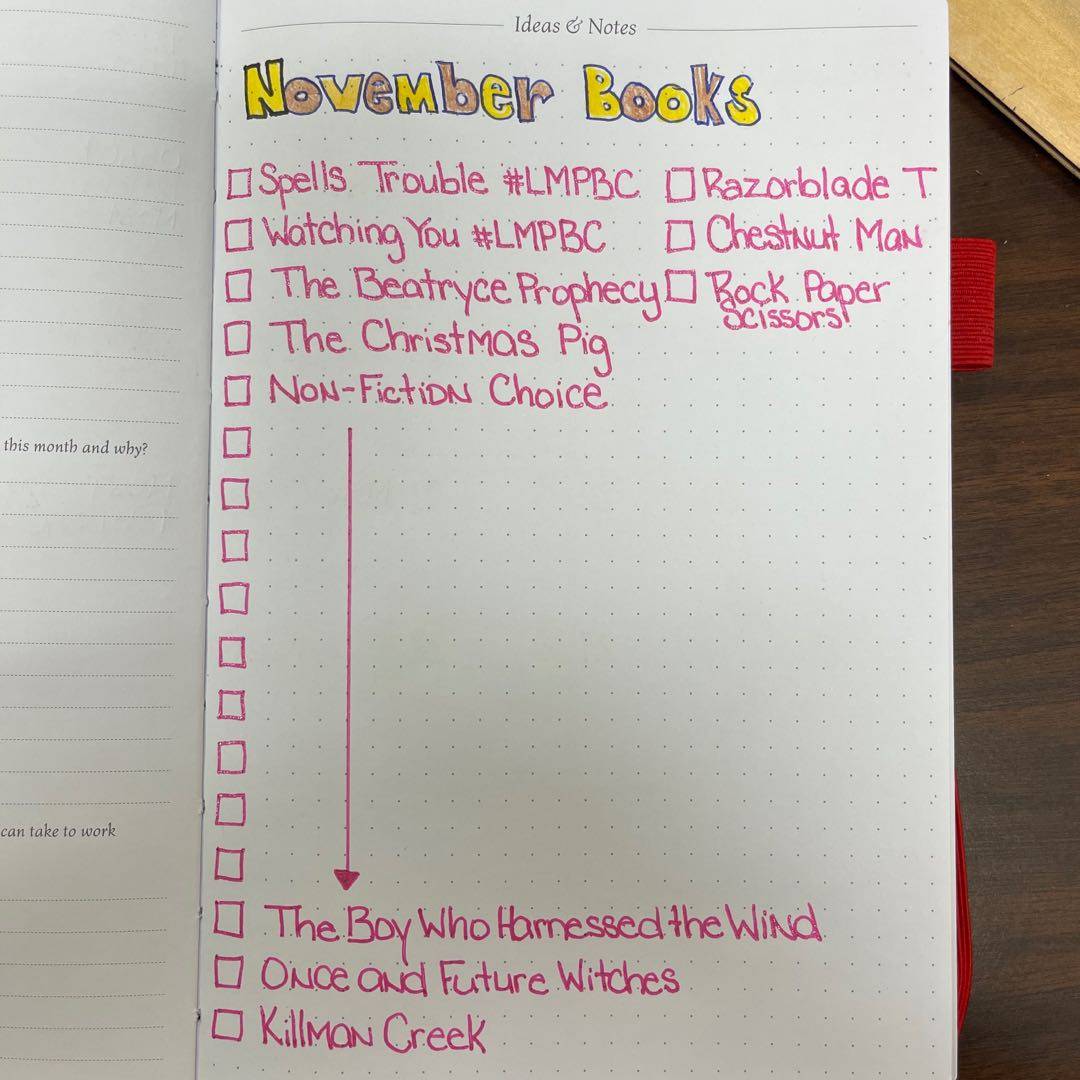 Ideas & Notes
November Books
Spells Trouble #LMPBC
Watching You #LMPBC
The Beatryce Prophecy
The Christmas Pig
Non-Fiction Choice
The Boy Who Harnessed the Wind
Once and Future Witches
Killman Creek
Razorblade T
Chestnut Man
Rock Paper
Scissors!
this month and why?
can take to work